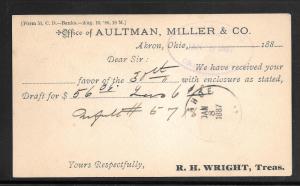 [Form 31, C. D.—Banks.—Aug. 10, '86, 10 M.]
Office of AULTMAN, MILLER & CO.
Akron, Ohio, 188
Dear Sir: We have received your
favor of the 30th with enclosure as stated,
Draft for $56
57
JAN
8
1887
Yours Respectfully,
R. H. WRIGHT, Treas.